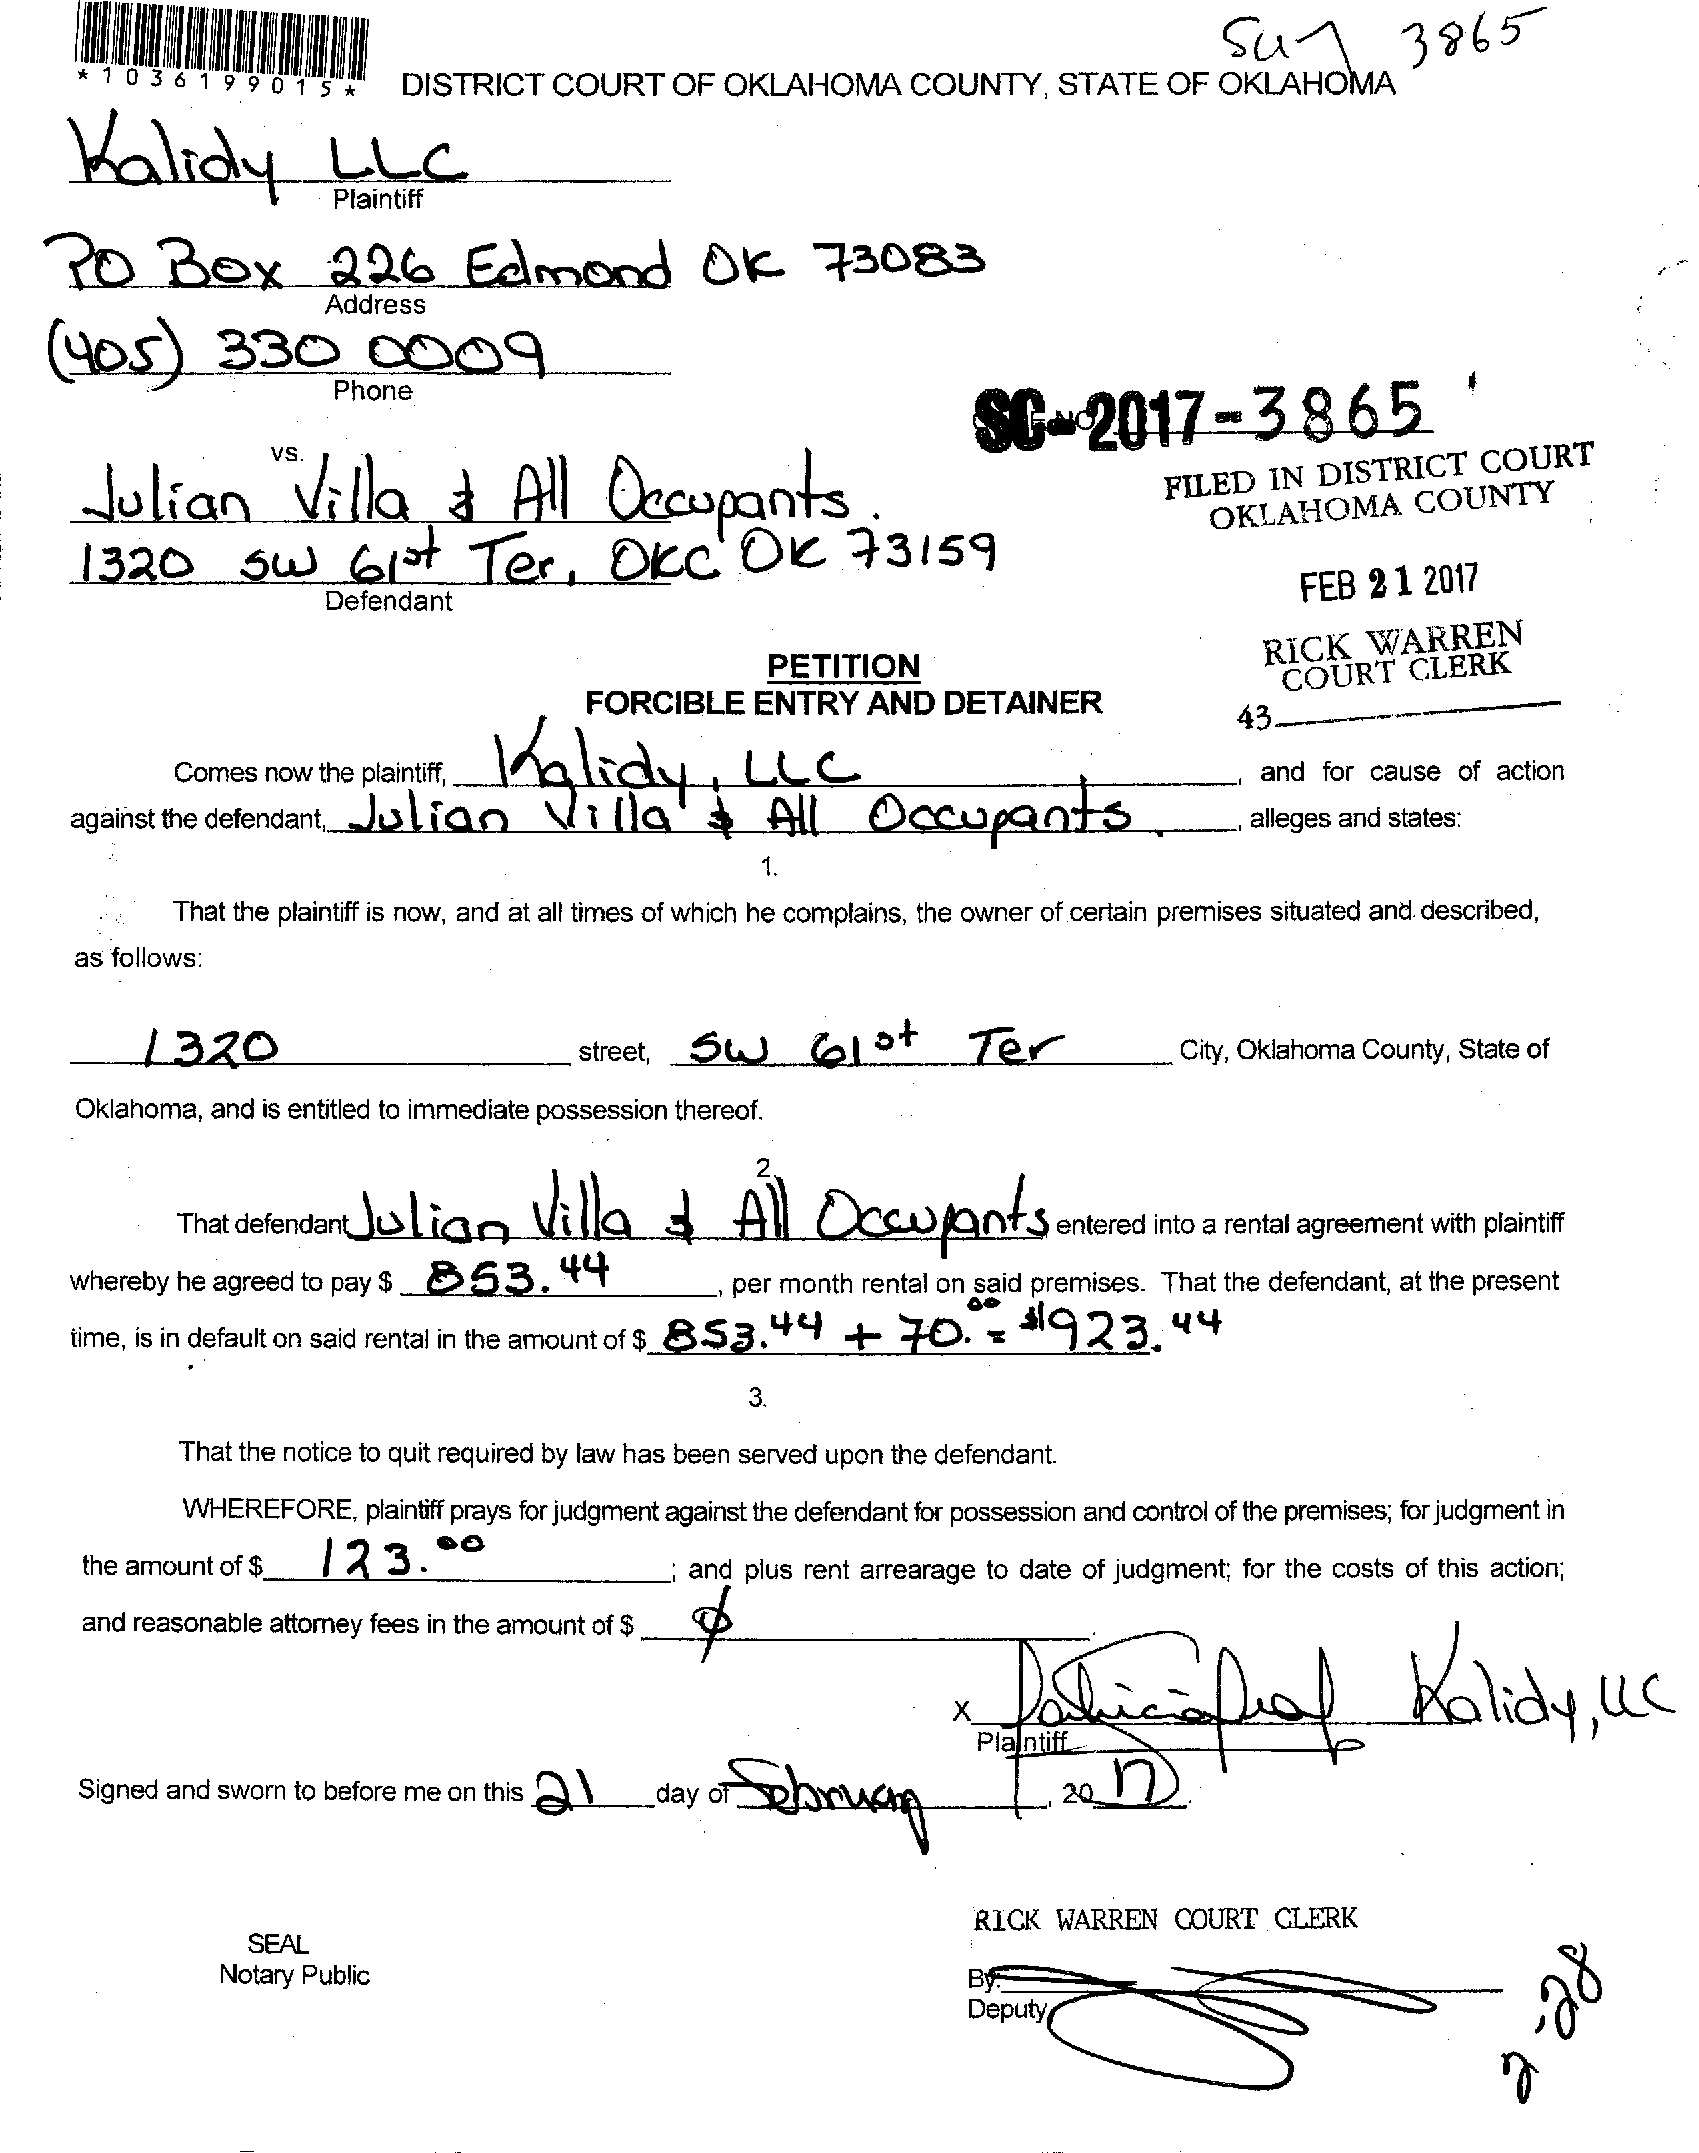 3865
*1036199015*
DISTRICT COURT OF OKLAHOMA COUNTY, STATE OF OKLAHOMA
Kalidy LLC
Plaintiff
PO Box 226 Edmond OK 73083
Address
(405) 330 0009
Phone
SC-2017-3865
vs.
Julian Villa & All Occupants.
1320 SW 61st Ter, OKC OK 73159
Defendant
FILED IN DISTRICT COURT
OKLAHOMA COUNTY
FEB 21 2017
RICK WARREN
COURT CLERK
43
PETITION
FORCIBLE ENTRY AND DETAINER
Comes now the plaintiff, Kalidy, LLC, and for cause of action
against the defendant, Julian Villa & All Occupants, alleges and states:
1.
That the plaintiff is now, and at all times of which he complains, the owner of certain premises situated and described,
as follows:
1320 street, SW 61st Ter City, Oklahoma County, State of
Oklahoma, and is entitled to immediate possession thereof.
2.
That defendant Julian Villa & All Occupants entered into a rental agreement with plaintiff
whereby he agreed to pay $ 853.44, per month rental on said premises. That the defendant, at the present
time, is in default on said rental in the amount of $ 853.44 + 70.00 = $923.44
3.
That the notice to quit required by law has been served upon the defendant.
WHEREFORE, plaintiff prays for judgment against the defendant for possession and control of the premises; for judgment in
the amount of $ 123.00; and plus rent arrearage to date of judgment; for the costs of this action;
and reasonable attorney fees in the amount of $ ∅
X Kalidy, LLC
Plaintiff
Signed and sworn to before me on this 21 day of February, 20 17
RICK WARREN COURT CLERK
SEAL
Notary Public
By:
Deputy